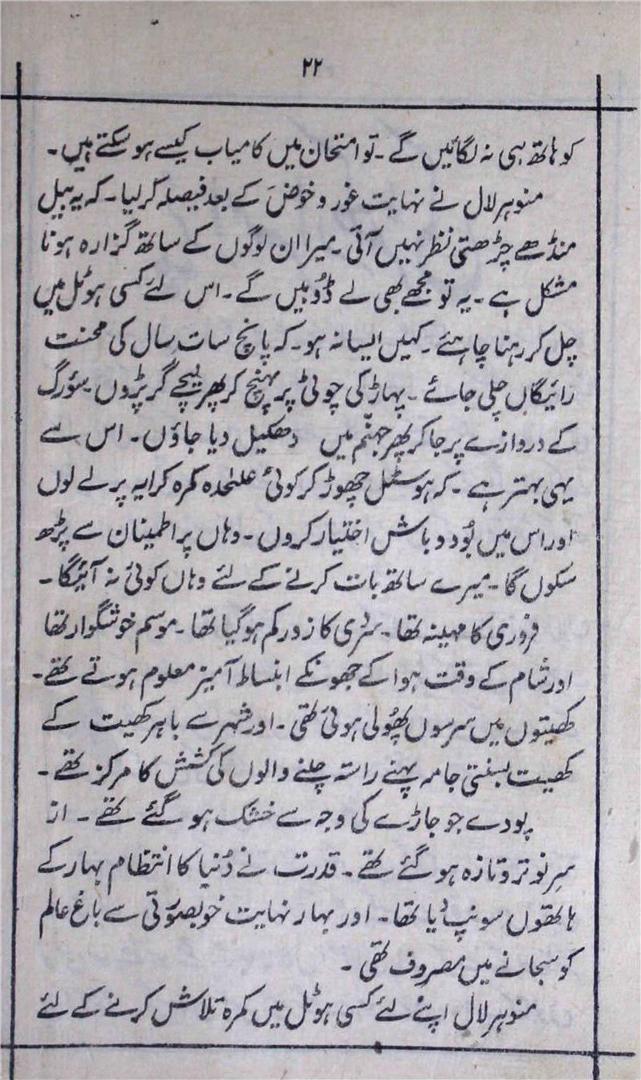 ۲۲
کو ہاتھ ہی نہ لگائیں گے ۔ تو امتحان میں کامیاب کیسے ہو سکتے ہیں ۔
منوہر لال نے نہایت غور و خوض کے بعد فیصلہ کر لیا ۔ کہ یہ بیل
منڈھے چڑھتی نظر نہیں آتی ۔ میرا ان لوگوں کے ساتھ گزارہ ہونا
مشکل ہے ۔ یہ تو مجھے بھی لے ڈوبیں گے ۔ اس لئے کسی ہوٹل میں
چل کر رہنا چاہئے ۔ کہیں ایسا نہ ہو ۔ کہ پانچ سات سال کی محنت
رائیگاں چلی جائے ۔ پہاڑ کی چوٹی پر پہنچ کر پھر نیچے گر پڑوں ۔ سؤرگ
کے دروازے پر جا کر پھر جہنّم میں دھکیل دیا جاؤں ۔ اس سے
یہی بہتر ہے ۔ کہ ہوسٹل چھوڑ کر کوئی علٰحدہ کمرہ کرایہ پر لے لوں
اور اس میں بُود و باش اختیار کروں ۔ وہاں پر اطمینان سے پڑھ
سکوں گا ۔ میرے ساتھ بات کرنے کے لئے وہاں کوئی نہ آئیگا ۔
فروری کا مہینہ تھا ۔ سردی کا زور کم ہو گیا تھا ۔ موسم خوشگوار تھا
اور شام کے وقت ہوا کے جھونکے انبساط آمیز معلوم ہوتے تھے ۔
کھیتوں میں سرسوں پھُولی ہوئی تھی ۔ اور شہر سے باہر کھیت کے
کھیت بسنتی جامہ پہنے راستہ چلنے والوں کی کشش کا مرکز تھے ۔
پودے جو جاڑے کی وجہ سے خشک ہو گئے تھے ۔ از
سرِ نو تر و تازہ ہو گئے تھے ۔ قدرت نے دُنیا کا انتظام بہار کے
ہاتھوں سونپ دیا تھا ۔ اور بہار نہایت خوبصورتی سے باغِ عالم
کو سجانے میں مصروف تھی ۔
منوہر لال اپنے لئے کسی ہوٹل میں کمرہ تلاش کرنے کے لئے